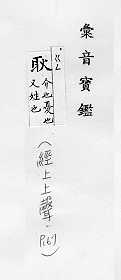 彙音寶鑑
ㄍㄥ
耿
介也憂也
又姓也
(經上上聲)